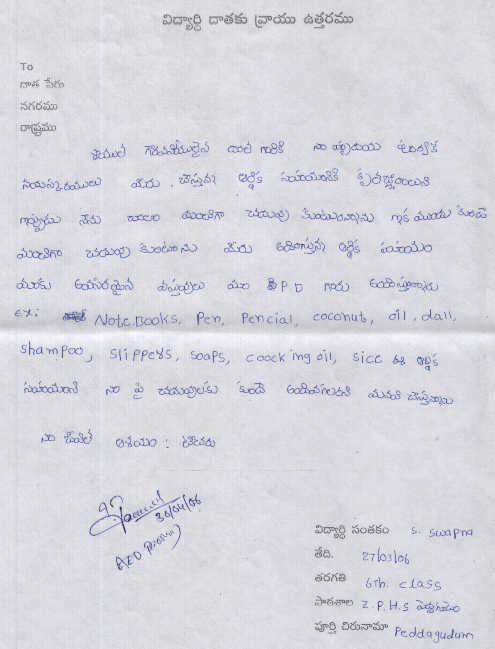 విద్యార్థి దాతకు వ్రాయు ఉత్తరము
To
దాత పేరు
నగరము
రాష్ట్రము
గౌరవనీయులైన దాత గారికి నా హృదయ పూర్వక
నమస్కారములు మీరు చేస్తున్న ఆర్థిక సహాయానికి కృతజ్ఞతలు
నేను చాలా మంచిగా చదువు కుంటున్నాను ఇక ముందు కూడా
మంచిగా చదువు కుంటాను మీరు అందిస్తున్న ఆర్థిక సహాయం
మాకు అవసరమైన వస్తువులు మా P D గారు అందిస్తున్నారు
ex: Note Books, Pen, Pencial, coconut, oil, dall,
shampoo, slippers, soaps, coocking oil, sicc ఈ ఆర్థిక
సహాయాన్ని నా పై చదువులకు కూడా మనవి చేస్తున్నాను
నా జీవిత ఆశయం : టీచరు
30/04/06
విద్యార్థి సంతకం S. Swapna
తేది. 27/03/06
తరగతి 6th. class
పాఠశాల Z.P.H.S పెద్దగూడెం
పూర్తి చిరునామా Peddagudum